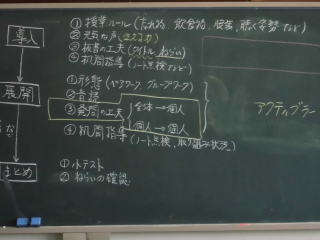 導入
① 授業ルール(忘れ物、飲食物、服装、聴く姿勢 など)
② 元気な声
③ 板書の工夫(タイトル、ねらい)
④ 机間指導(ノート点検など)
展開
① 形態(ペアワーク、グループワーク)
② 音読
③ 発問の工夫
全体→個人
個人→個人
④ 机間指導(ノート点検、取り組み状況)
アクティブラー
まとめ
① 小テスト
② ねらいの確認